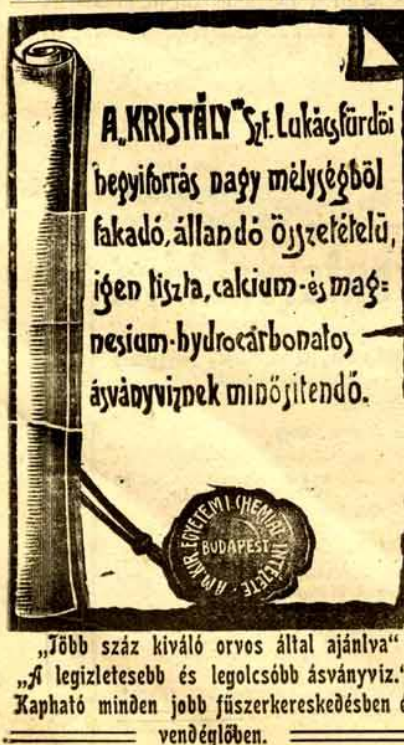 A „KRISTÁLY" Szt. Lukácsfürdöi
hegyiforrás nagy mélységböl
fakadó, állandó összetételü,
igen tiszta, calcium- és mag=
nesium-hydrocárbonatos
ásványviznek minősitendő.
A M. KIR. EGYETEM I. CHEMIAI INTÉZETE
BUDAPEST
„Több száz kiváló orvos által ajánlva"
„A legizletesebb és legolcsóbb ásványviz."
Kapható minden jobb füszerkereskedésben é
vendéglőben.